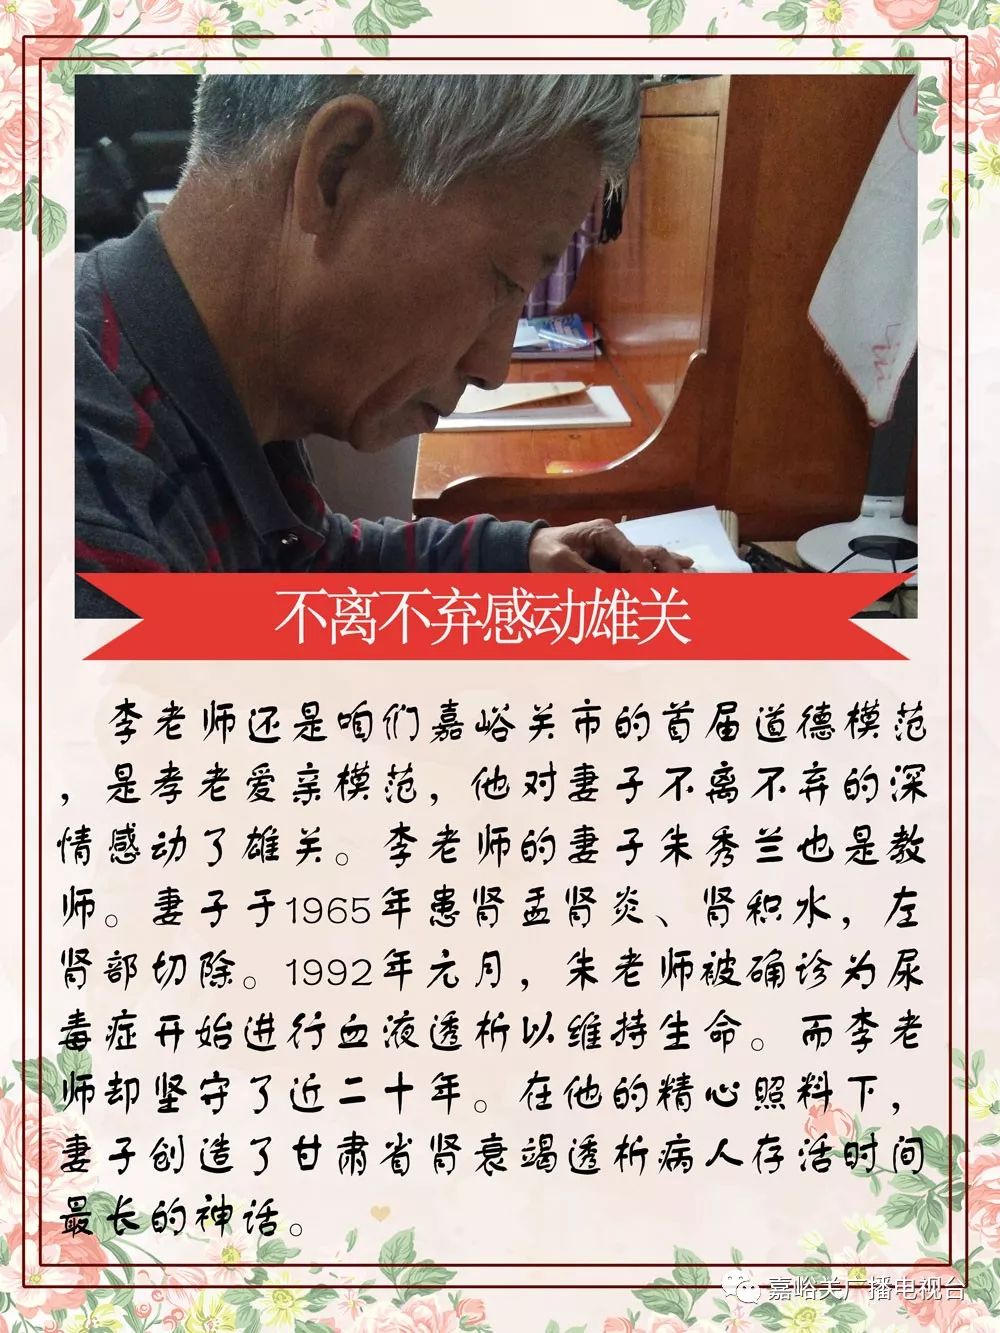 不离不弃感动雄关
李老师还是咱们嘉峪关市的首届道德模范
，是孝老爱亲模范，他对妻子不离不弃的深
情感动了雄关。李老师的妻子朱秀兰也是教
师。妻子于1965年患肾盂肾炎、肾积水，左
肾部切除。1992年元月，朱老师被确诊为尿
毒症开始进行血液透析以维持生命。而李老
师却坚守了近二十年。在他的精心照料下，
妻子创造了甘肃省肾衰竭透析病人存活时间
最长的神话。
嘉峪关广播电视台